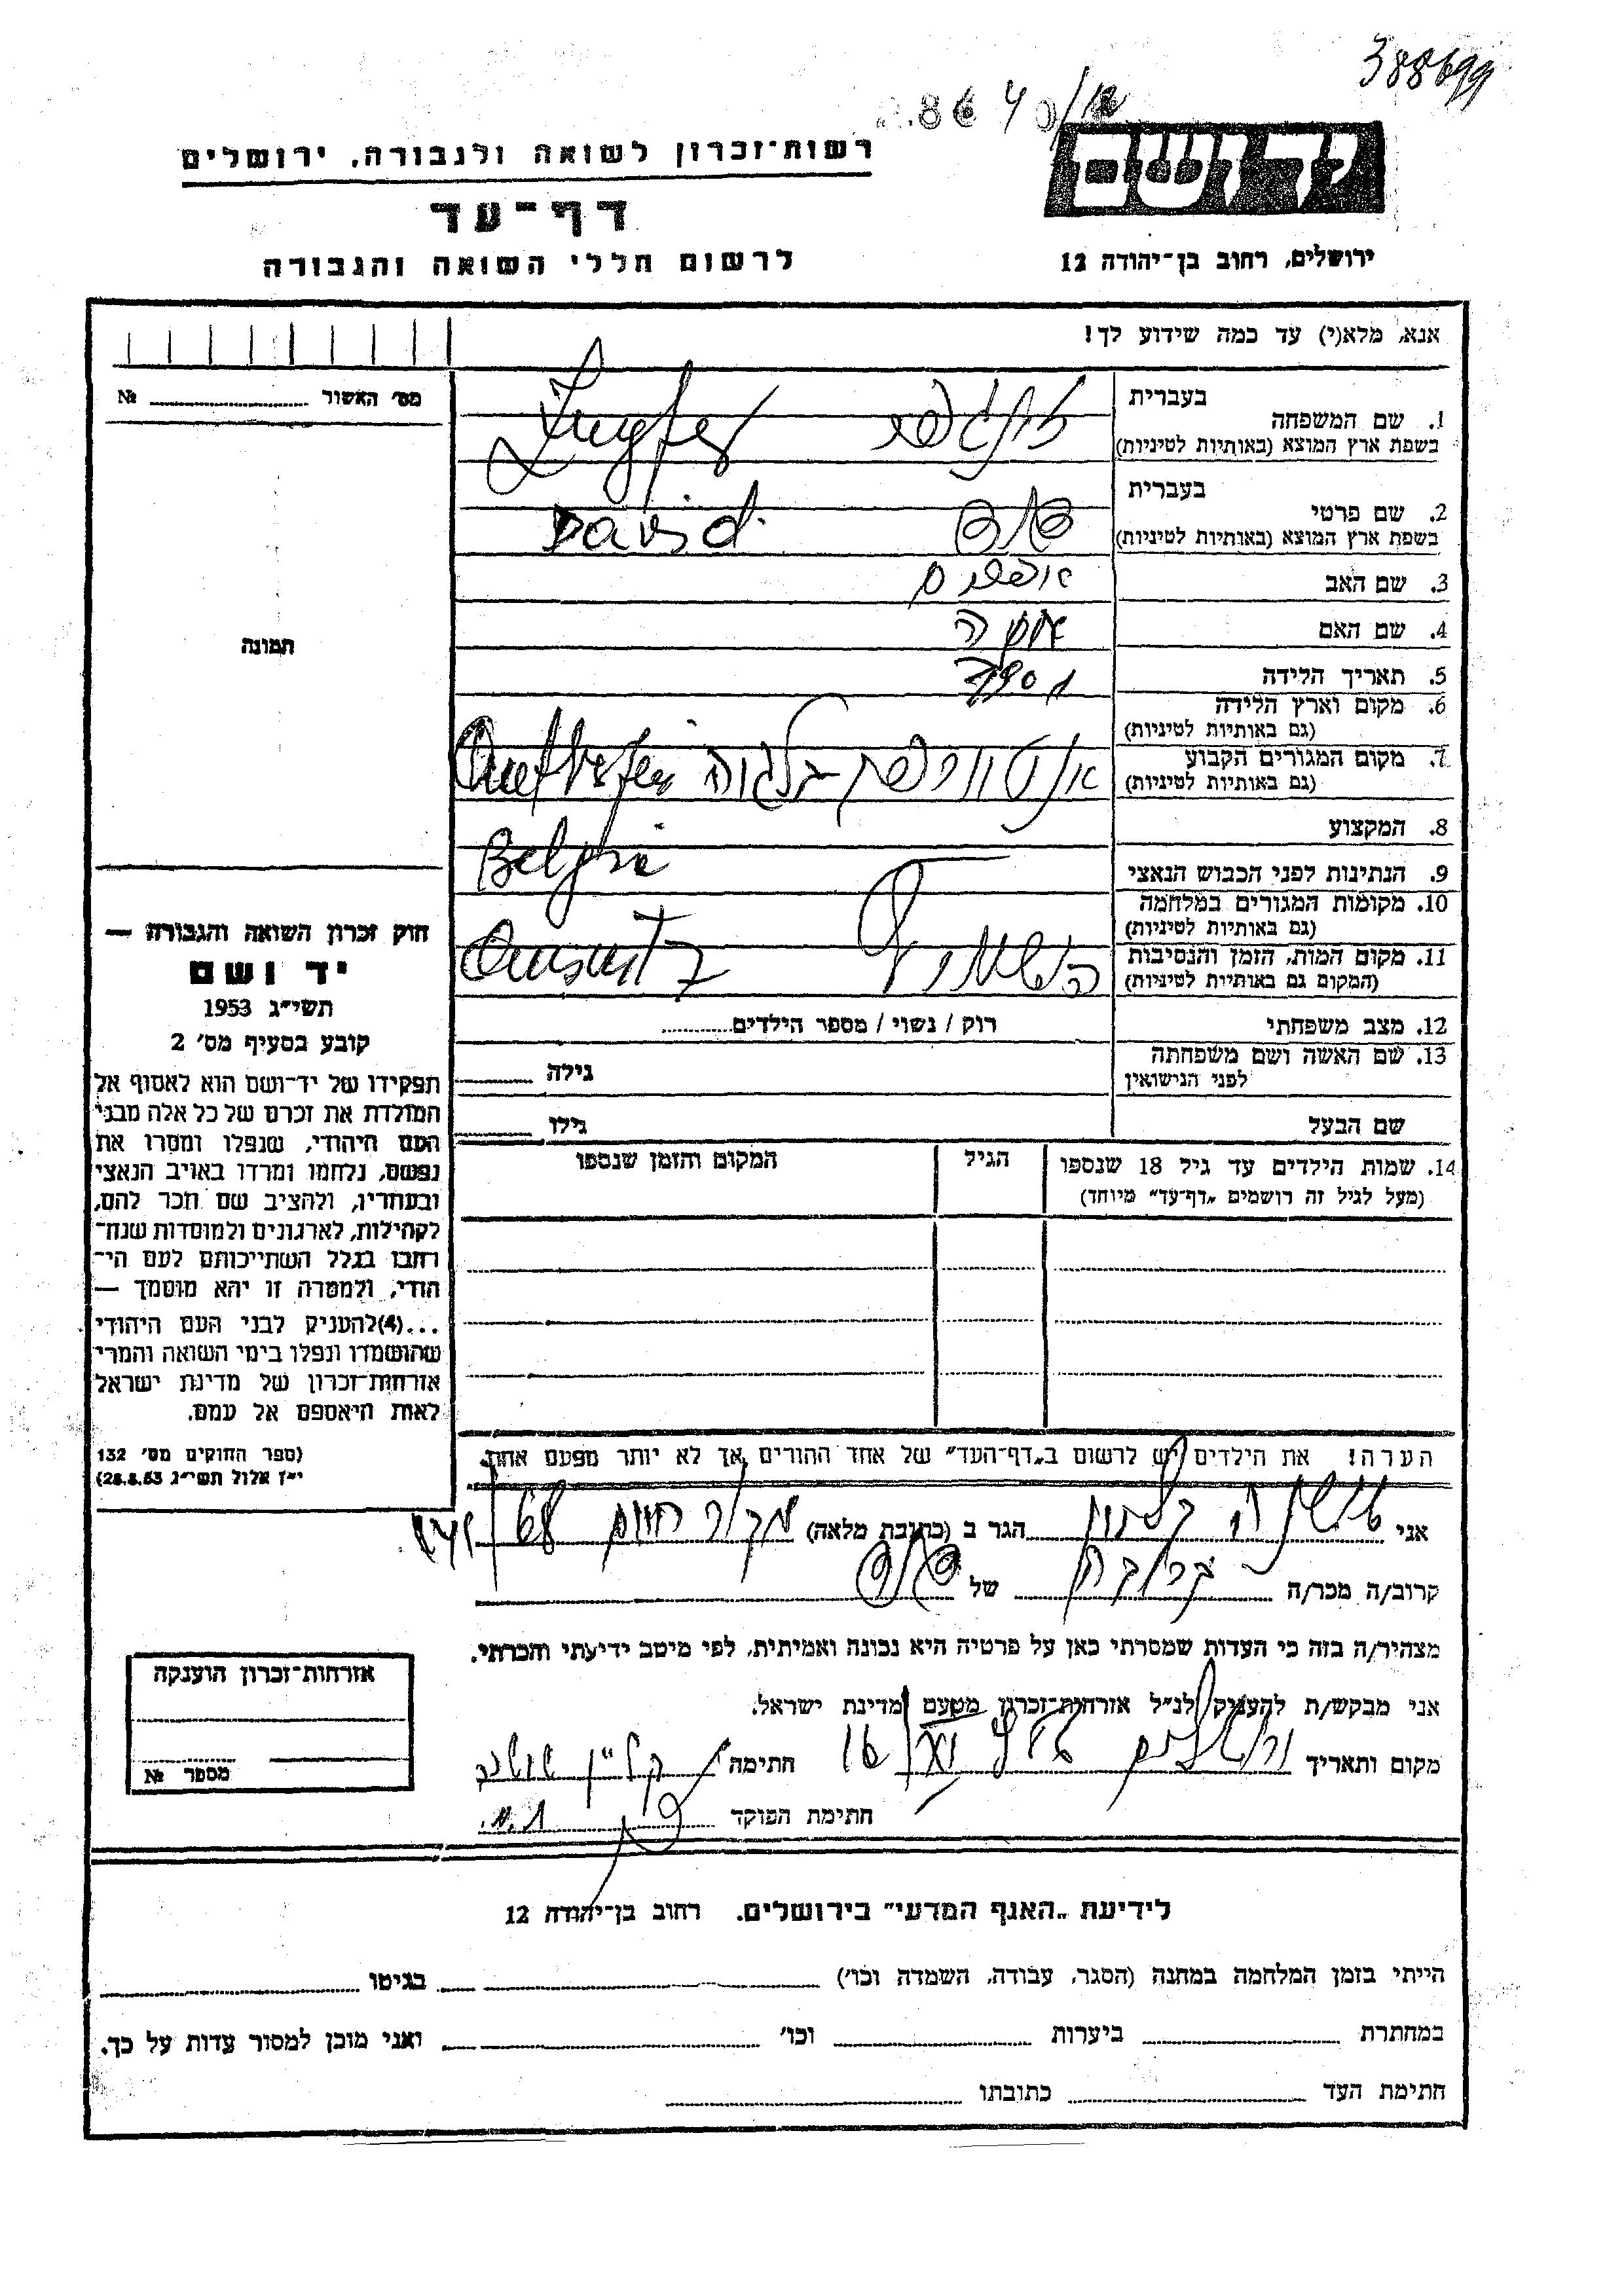 388699
ידושם
רשות־זכרון לשואה ולגבורה, ירושלים
דף־עד
לרשום חללי השואה והגבורה
ירושלים, רחוב בן־יהודה 12
אנא, מלא(י) עד כמה שידוע לך!
מס׳ האשור № 
תמונה
בעברית
1. שם המשפחה
בשפת ארץ המוצא (באותיות לטיניות)
בעברית
2. שם פרטי
בשפת ארץ המוצא (באותיות לטיניות)
דוד David
3. שם האב אפרים
4. שם האם
5. תאריך הלידה
6. מקום וארץ הלידה
(גם באותיות לטיניות)
7. מקום המגורים הקבוע
(גם באותיות לטיניות)
בלגיה
8. המקצוע
9. הנתינות לפני הכבוש הנאצי
10. מקומות המגורים במלחמה
(גם באותיות לטיניות)
11. מקום המות, הזמן והנסיבות
(המקום גם באותיות לטיניות)
12. מצב משפחתי רוק / נשוי / מספר הילדים
13. שם האשה ושם משפחתה
לפני הנישואין
גילה
שם הבעל גילו
14. שמות הילדים עד גיל 18 שנספו
(מעל לגיל זה רושמים „דף־עד״ מיוחד)
הגיל
המקום והזמן שנספו
חוק זכרון השואה והגבורה —
יד ושם
תשי״ג 1953
קובע בסעיף מס׳ 2
תפקידו של יד־ושם הוא לאסוף אל
המולדת את זכרם של כל אלה מבני
העם היהודי, שנפלו ומסרו את
נפשם, נלחמו ומרדו באויב הנאצי
ובעוזריו, ולהציב שם וזכר להם,
לקהילות, לארגונים ולמוסדות שנח־
רבו בגלל השתייכותם לעם הי־
הודי, ולמטרה זו יהא מוסמך —
...(4)להעניק לבני העם היהודי
שהושמדו ונפלו בימי השואה והמרי
אזרחות־זכרון של מדינת ישראל
לאות היאספם אל עמם.
(ספר החוקים מס׳ 132
י״ז אלול תשי״ג 28.8.53)
הערה! את הילדים יש לרשום ב„דף־העד״ של אחד ההורים אך לא יותר מפעם אחת.
אני שושנה קלטון הגר ב (כתובת מלאה) מקור חיים 68
קרוב/ה מכר/ה קרובה של דוד
מצהיר/ה בזה כי העדות שמסרתי כאן על פרטיה היא נכונה ואמיתית, לפי מיטב ידיעתי והכרתי.
אני מבקש/ת להעניק לנ״ל אזרחות־זכרון מטעם מדינת ישראל.
מקום ותאריך ירושלים חתימה
חתימת הפוקד
אזרחות־זכרון הוענקה
מספר №
לידיעת „האגף המדעי״ בירושלים. רחוב בן־יהודה 12
הייתי בזמן המלחמה במחנה (הסגר, עבודה, השמדה וכו׳) בגיטו
במחתרת ביערות וכו׳ ואני מוכן למסור עדות על כך.
חתימת העד כתובתו